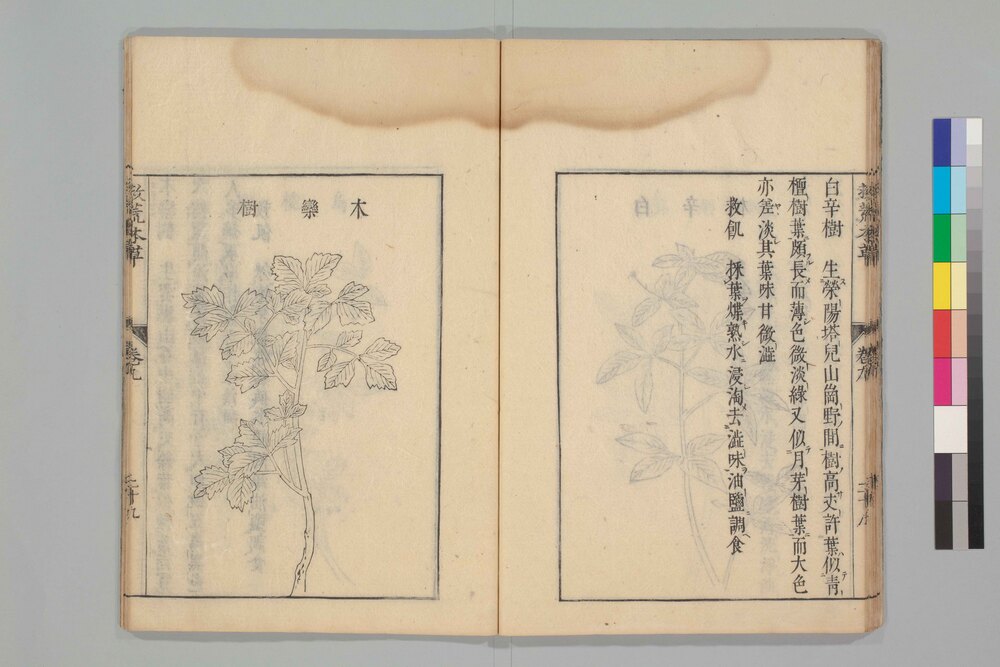 白辛樹　生滎陽塔兒山崗野間樹高丈許葉似靑
檀樹葉頗長而薄色微淡綠又似月芽樹葉而大色
亦差淡其葉味甘微澁
救飢　採葉煠熟水浸淘去澁味油鹽調食
木欒樹
救荒本草
卷之九